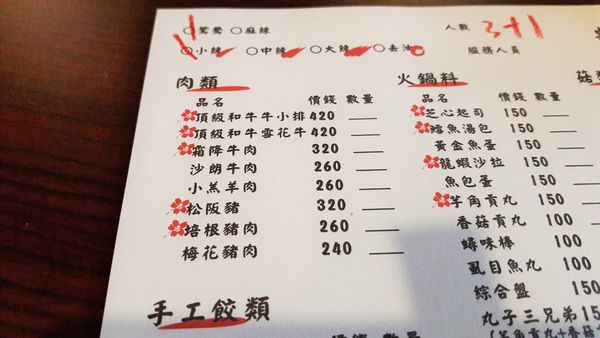 ○鴛鴦 ○麻辣
人數 3+1
○小辣 ○中辣 ○大辣 ○去油
服務人員
肉類
品名 價錢 數量
頂級和牛牛小排 420
頂級和牛雪花牛 420
霜降牛肉 320
沙朗牛肉 260
小羔羊肉 260
松阪豬 320
培根豬肉 260
梅花豬肉 240
手工餃類
價錢 數量
火鍋料
品名 價錢 數量
芝心起司 150
鱈魚湯包 150
黃金魚蛋 150
龍蝦沙拉 150
魚包蛋 150
芋角貢丸 150
香菇貢丸 100
蟳味棒 100
虱目魚丸 100
綜合盤 150
丸子三兄弟 15
(芋角貢丸+香菇
菇